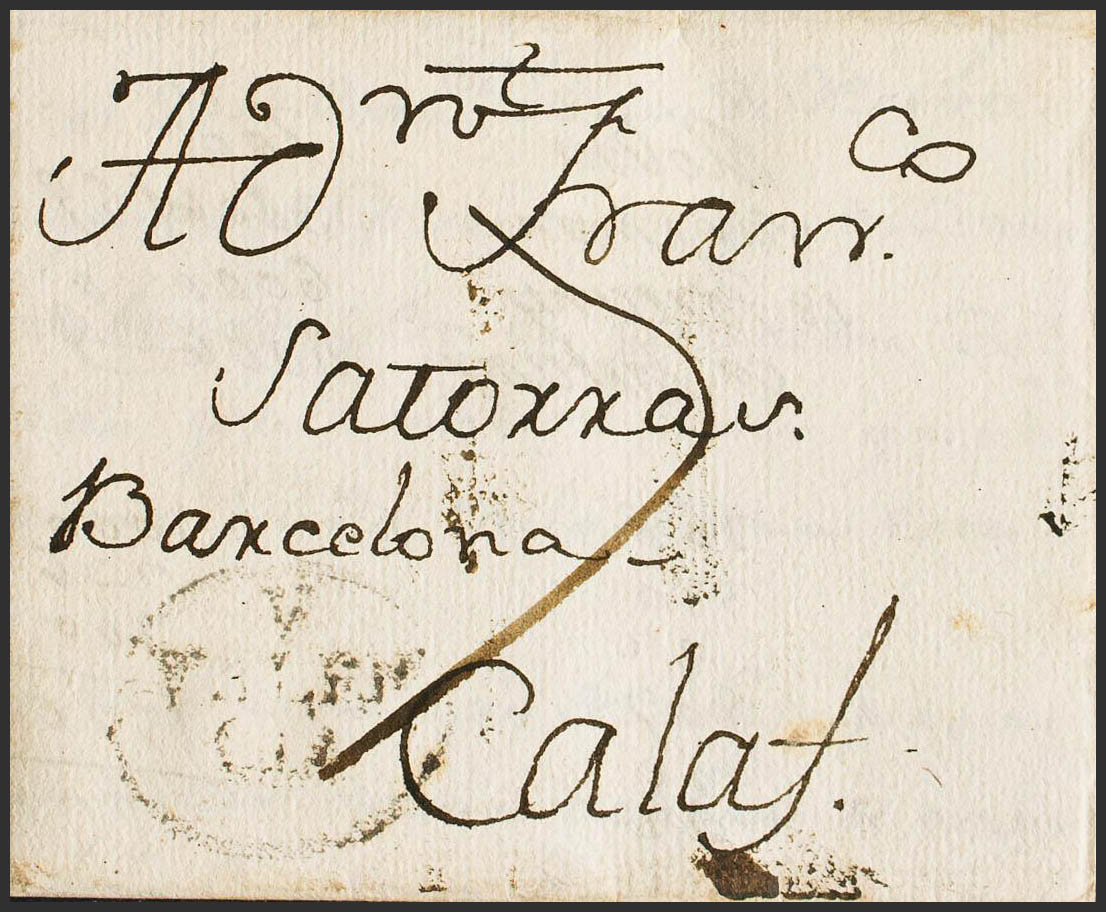 A D Franco.
Satorras.
Barcelona
Calaf.